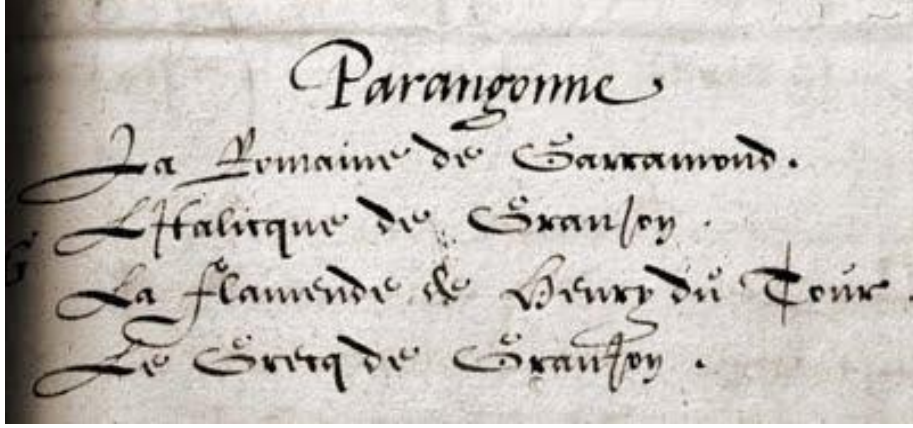 Parangonne
La Romaine de Garramond.
L'Italicque de Granjon.
La flamende de Henry du Tour.
Le Grecq de Granjon.